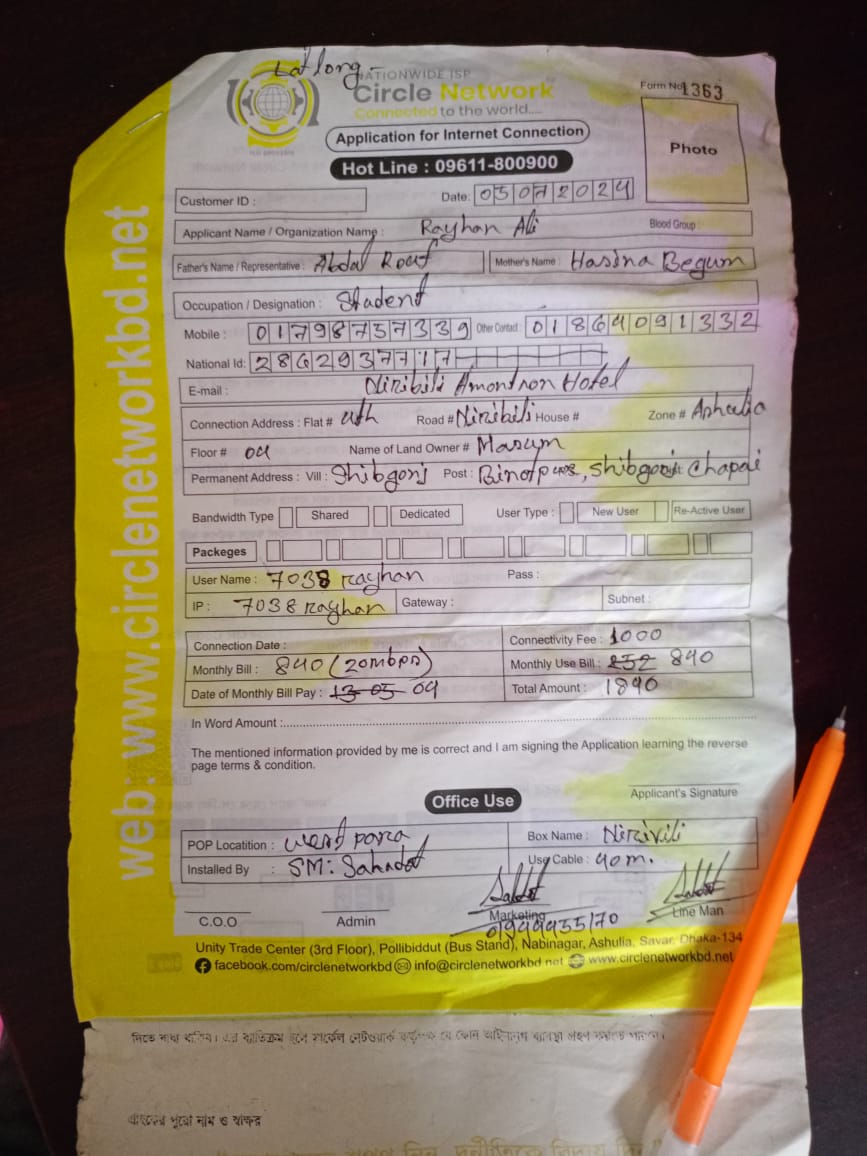 Lat long -
NATIONWIDE ISP
Circle Network
Connected to the world.....
Form No 1363
Application for Internet Connection
Photo
Hot Line : 09611-800900
Customer ID :
Date: 05072024
Applicant Name / Organization Name : Rayhan Ali Blood Group
Father's Name / Representative : Abdal Rouf Mother's Name : Hasina Begum
Occupation / Designation : Student
Mobile : 01798757339 Other Contact : 01864091332
National Id: 2862937717
E-mail : Niribili Amontron Hotel
Connection Address : Flat # 4th Road # Niribili House # Zone # Ashulia
Floor # 04 Name of Land Owner # Masum
Permanent Address : Vill : Shibgonj Post : Binotpur, Shibgonj Chapai
Bandwidth Type Shared Dedicated User Type : New User Re-Active User
Packeges
User Name : 7038 rayhan Pass :
IP : 7038 rayhan Gateway : Subnet :
Connection Date : Connectivity Fee : 1000
Monthly Bill : 840 (20mbps) Monthly Use Bill : 252 890
Date of Monthly Bill Pay : 13-05 04 Total Amount : 1890
In Word Amount :
The mentioned information provided by me is correct and I am signing the Application learning the reverse
page terms & condition.
Applicant's Signature
Office Use
POP Locatition : West para Box Name : Nirivili
Installed By : SM: Sahadot Use Cable : 40m.
C.O.O Admin Marketing Line Man
Unity Trade Center (3rd Floor), Pollibiddut (Bus Stand), Nabinagar, Ashulia, Savar, Dhaka-134
facebook.com/circlenetworkbd info@circlenetworkbd.net www.circlenetworkbd.net
web: www.circlenetworkbd.net
দিতে বাধ্য থাকিব। এর ব্যতিক্রম হলে সার্কেল নেটওয়ার্ক কর্তৃপক্ষ যে কোন আইনানুগ ব্যবস্থা গ্রহণ করতে পারবে।
গ্রাহকের পুরো নাম ও স্বাক্ষর